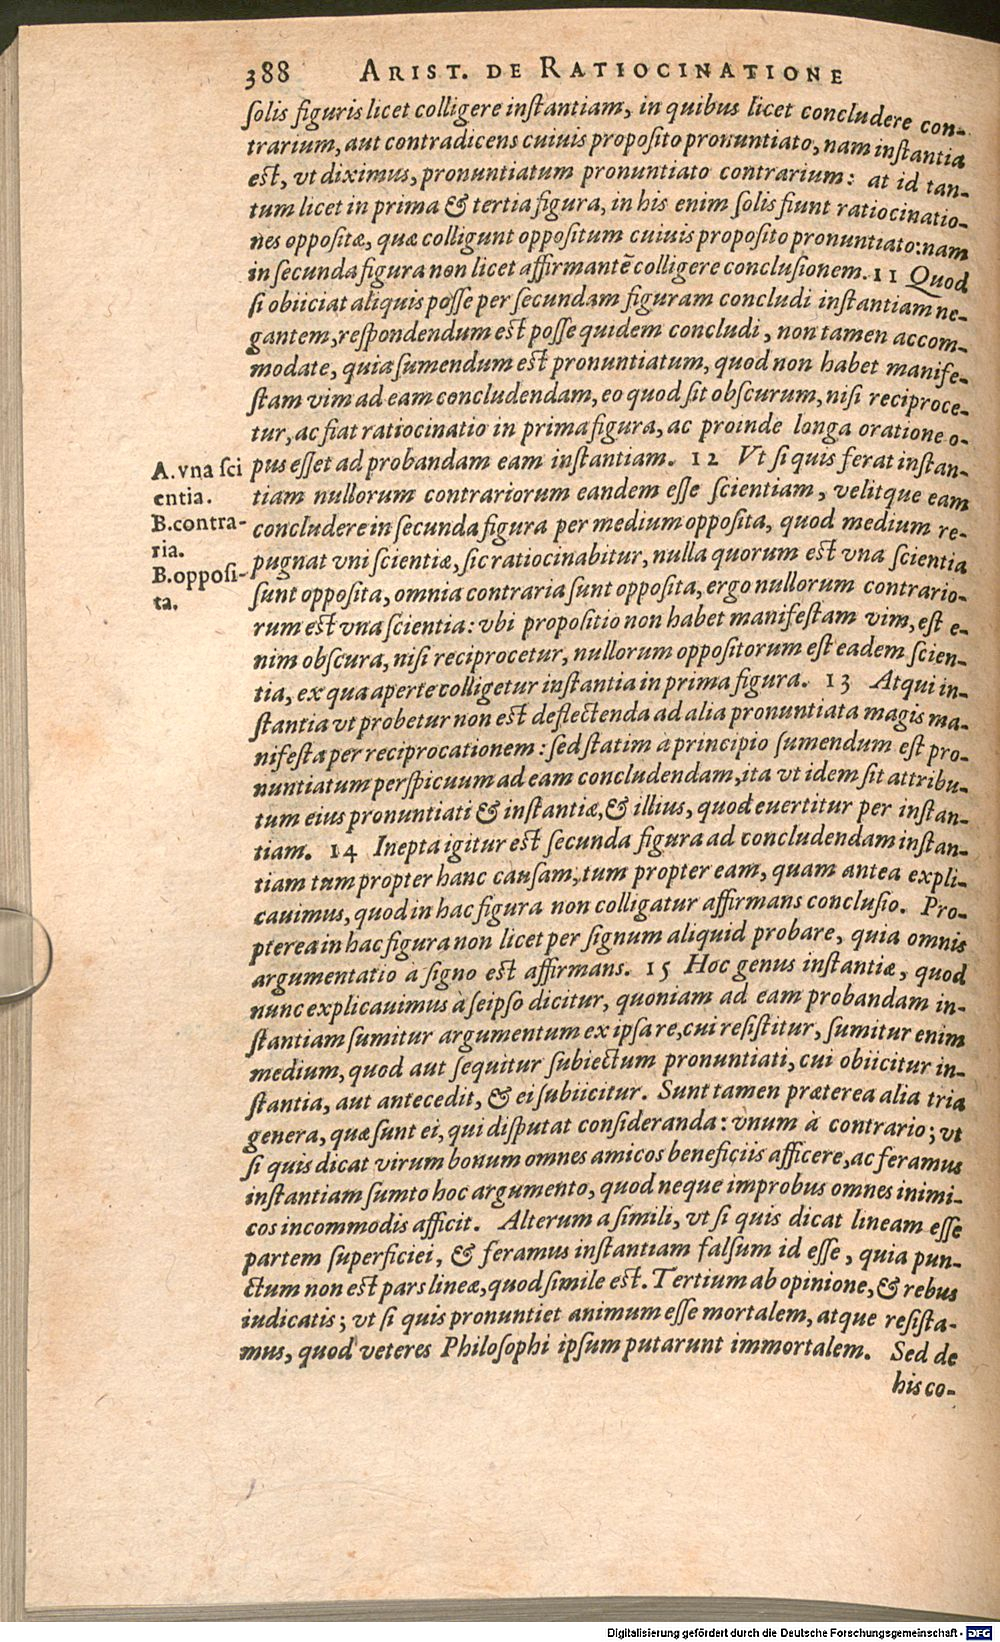 388 ARIST. DE RATIOCINATIONE
ſolis figuris licet colligere inſtantiam, in quibus licet concludere con-
trarium, aut contradicens cuiuis propoſito pronuntiato, nam inſtantia
eſt, vt diximus, pronuntiatum pronuntiato contrarium: at id tan-
tum licet in prima & tertia figura, in his enim ſolis fiunt ratiocinatio-
nes oppoſitæ, quæ colligunt oppoſitum cuiuis propoſito pronuntiato: nam
in ſecunda figura non licet affirmantē colligere concluſionem. 11 Quod
ſi obiiciat aliquis poſſe per ſecundam figuram concludi inſtantiam ne-
gantem, reſpondendum eſt poſſe quidem concludi, non tamen accom-
modate, quia ſumendum eſt pronuntiatum, quod non habet manife-
ſtam vim ad eam concludendam, eo quod ſit obſcurum, niſi reciproce-
tur, ac fiat ratiocinatio in prima figura, ac proinde longa oratione o-
pus eſſet ad probandam eam inſtantiam. 12 Vt ſi quis ferat inſtan-
tiam nullorum contrariorum eandem eſſe ſcientiam, velitque eam
concludere in ſecunda figura per medium oppoſita, quod medium re-
pugnat vni ſcientiæ, ſic ratiocinabitur, nulla quorum eſt vna ſcientia
ſunt oppoſita, omnia contraria ſunt oppoſita, ergo nullorum contrario-
rum eſt vna ſcientia: vbi propoſitio non habet manifeſtam vim, eſt e-
nim obſcura, niſi reciprocetur, nullorum oppoſitorum eſt eadem ſcien-
tia, ex qua aperte colligetur inſtantia in prima figura. 13 Atqui in-
ſtantia vt probetur non eſt deflectenda ad alia pronuntiata magis ma-
nifeſta per reciprocationem: ſed ſtatim a principio ſumendum eſt pro-
nuntiatum perſpicuum ad eam concludendam, ita vt idem ſit attribu-
tum eius pronuntiati & inſtantiæ, & illius, quod euertitur per inſtan-
tiam. 14 Inepta igitur eſt ſecunda figura ad concludendam inſtan-
tiam tum propter hanc cauſam, tum propter eam, quam antea expli-
cauimus, quod in hac figura non colligatur affirmans concluſio. Pro-
pterea in hac figura non licet per ſignum aliquid probare, quia omnis
argumentatio à ſigno eſt affirmans. 15 Hoc genus inſtantiæ, quod
nunc explicauimus à ſeipſo dicitur, quoniam ad eam probandam in-
ſtantiam ſumitur argumentum ex ipſa re, cui reſiſtitur, ſumitur enim
medium, quod aut ſequitur ſubiectum pronuntiati, cui obiicitur in-
ſtantia, aut antecedit, & ei ſubiicitur. Sunt tamen præterea alia tria
genera, quæ ſunt ei, qui diſputat conſideranda: vnum à contrario; vt
ſi quis dicat virum bonum omnes amicos beneficiis afficere, ac feramus
inſtantiam ſumto hoc argumento, quod neque improbus omnes inimi-
cos incommodis afficit. Alterum a ſimili, vt ſi quis dicat lineam eſſe
partem ſuperficiei, & feramus inſtantiam falſum id eſſe, quia pun-
ctum non eſt pars lineæ, quod ſimile eſt. Tertium ab opinione, & rebus
iudicatis; vt ſi quis pronuntiet animum eſſe mortalem, atque reſiſta-
mus, quod veteres Philoſophi ipſum putarunt immortalem. Sed de
his co-
A. vna ſci
entia.
B. contra-
ria.
B. oppoſi-
ta.
Digitalisierung gefördert durch die Deutsche Forschungsgemeinschaft - DFG